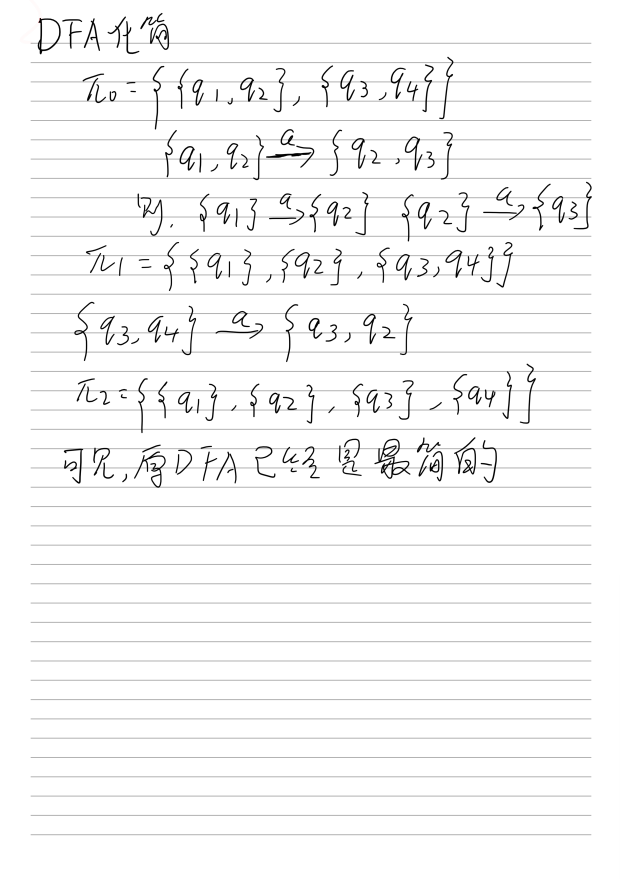 DFA化简
π₀={{q₁,q₂},{q₃,q₄}}
{q₁,q₂} —a→ {q₂,q₃}
则. {q₁} —a→ {q₂} {q₂} —a→ {q₃}
π₁={{q₁},{q₂},{q₃,q₄}}
{q₃,q₄} —a→ {q₃,q₂}
π₂={{q₁},{q₂},{q₃},{q₄}}
可见,原DFA已经是最简的